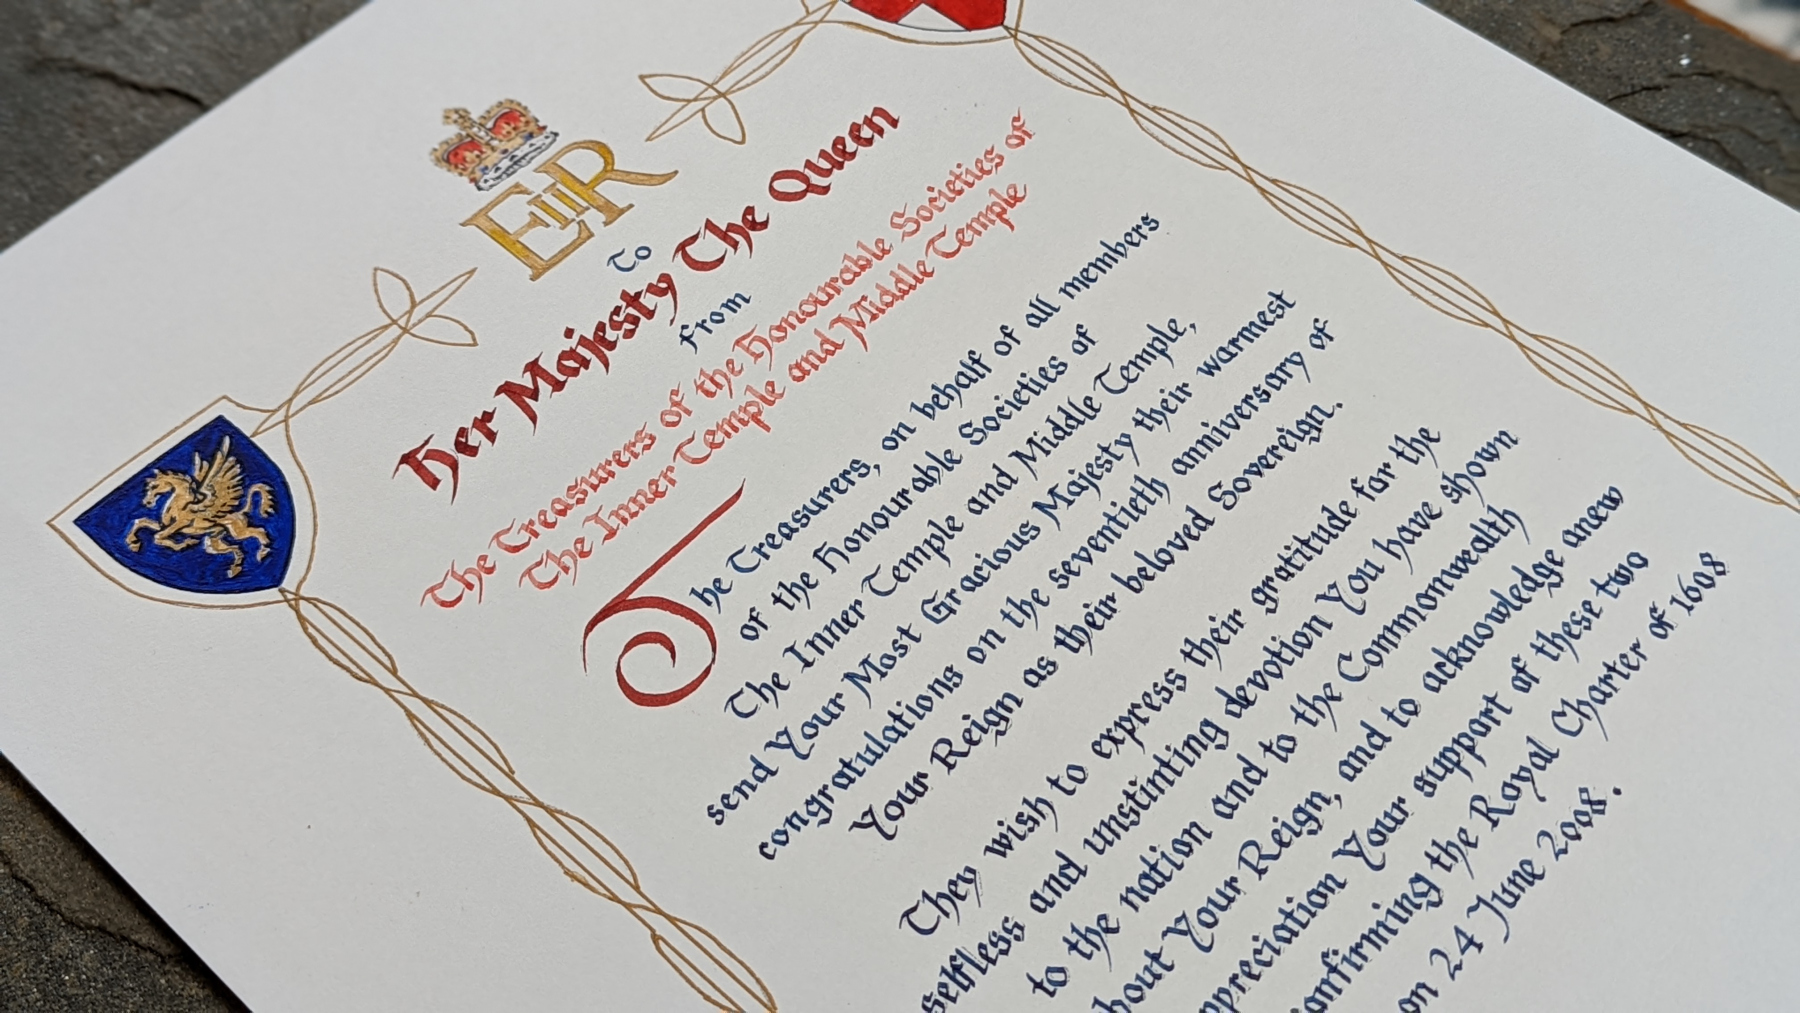 EIIR
To
Her Majesty The Queen
from
The Treasurers of the Honourable Societies of
The Inner Temple and Middle Temple
The Treasurers, on behalf of all members
of the Honourable Societies of
The Inner Temple and Middle Temple,
send Your Most Gracious Majesty their warmest
congratulations on the seventieth anniversary of
Your Reign as their beloved Sovereign.
They wish to express their gratitude for the
selfless and unstinting devotion You have shown
to the nation and to the Commonwealth
hout Your Reign, and to acknowledge anew
ppreciation Your support of these two
onfirming the Royal Charter of 1608
on 24 June 2008.